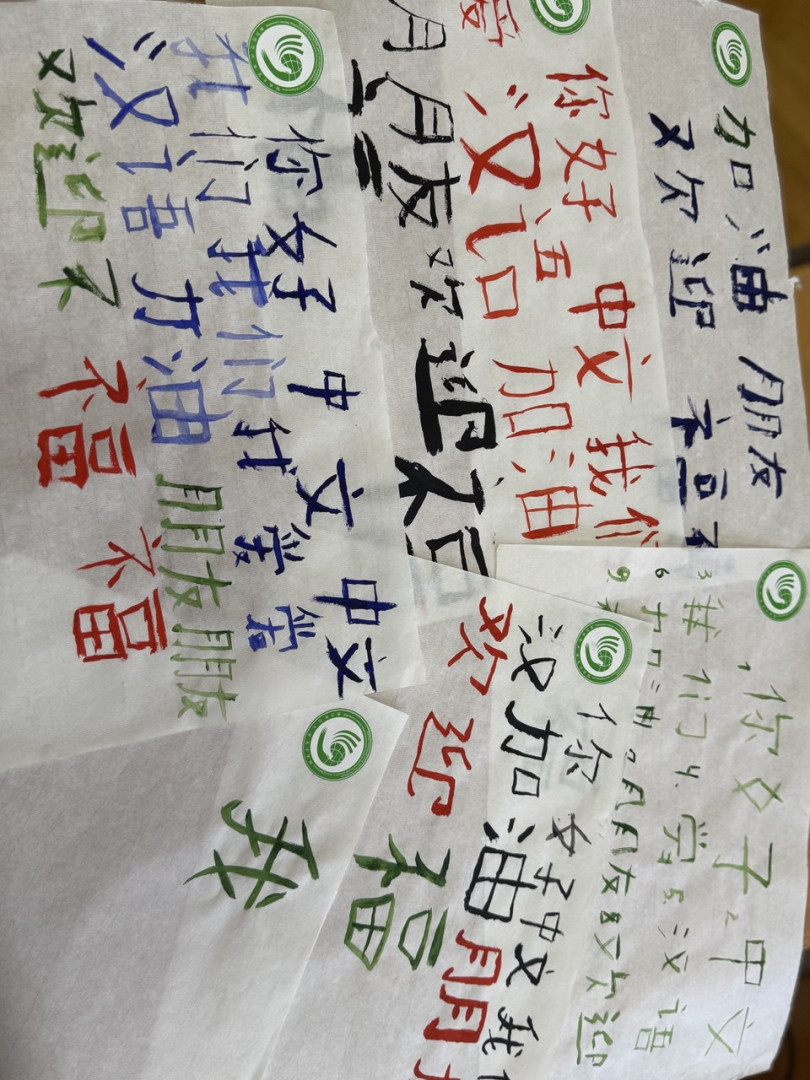 你好中文中文
我们我们
汉语加油朋友朋友
欢迎
福
福
你好中文我们
汉语加油
朋友欢迎福
加油朋友
欢迎福
你好 2. 中文
3 我们 4. 学 5 汉语
6 加油 朋友 8 欢迎
9
你好中文我
汉加油朋
欢迎福
我